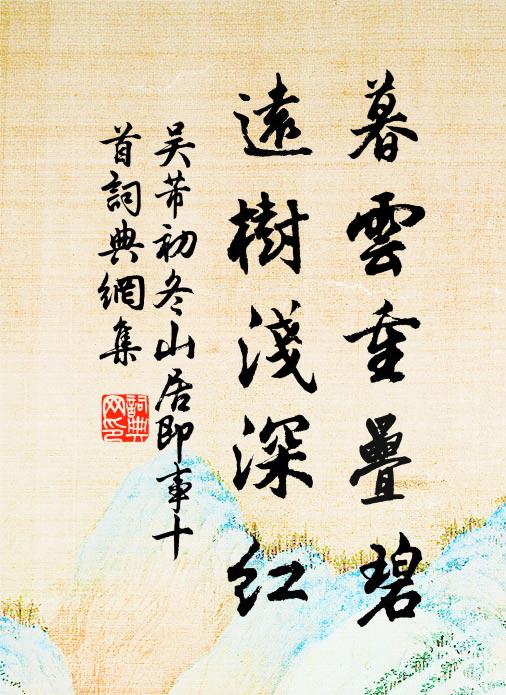 暮雲重疊碧
遠樹淺深紅
吳芾初冬山居即事十
首詞典網集
詞典
网印